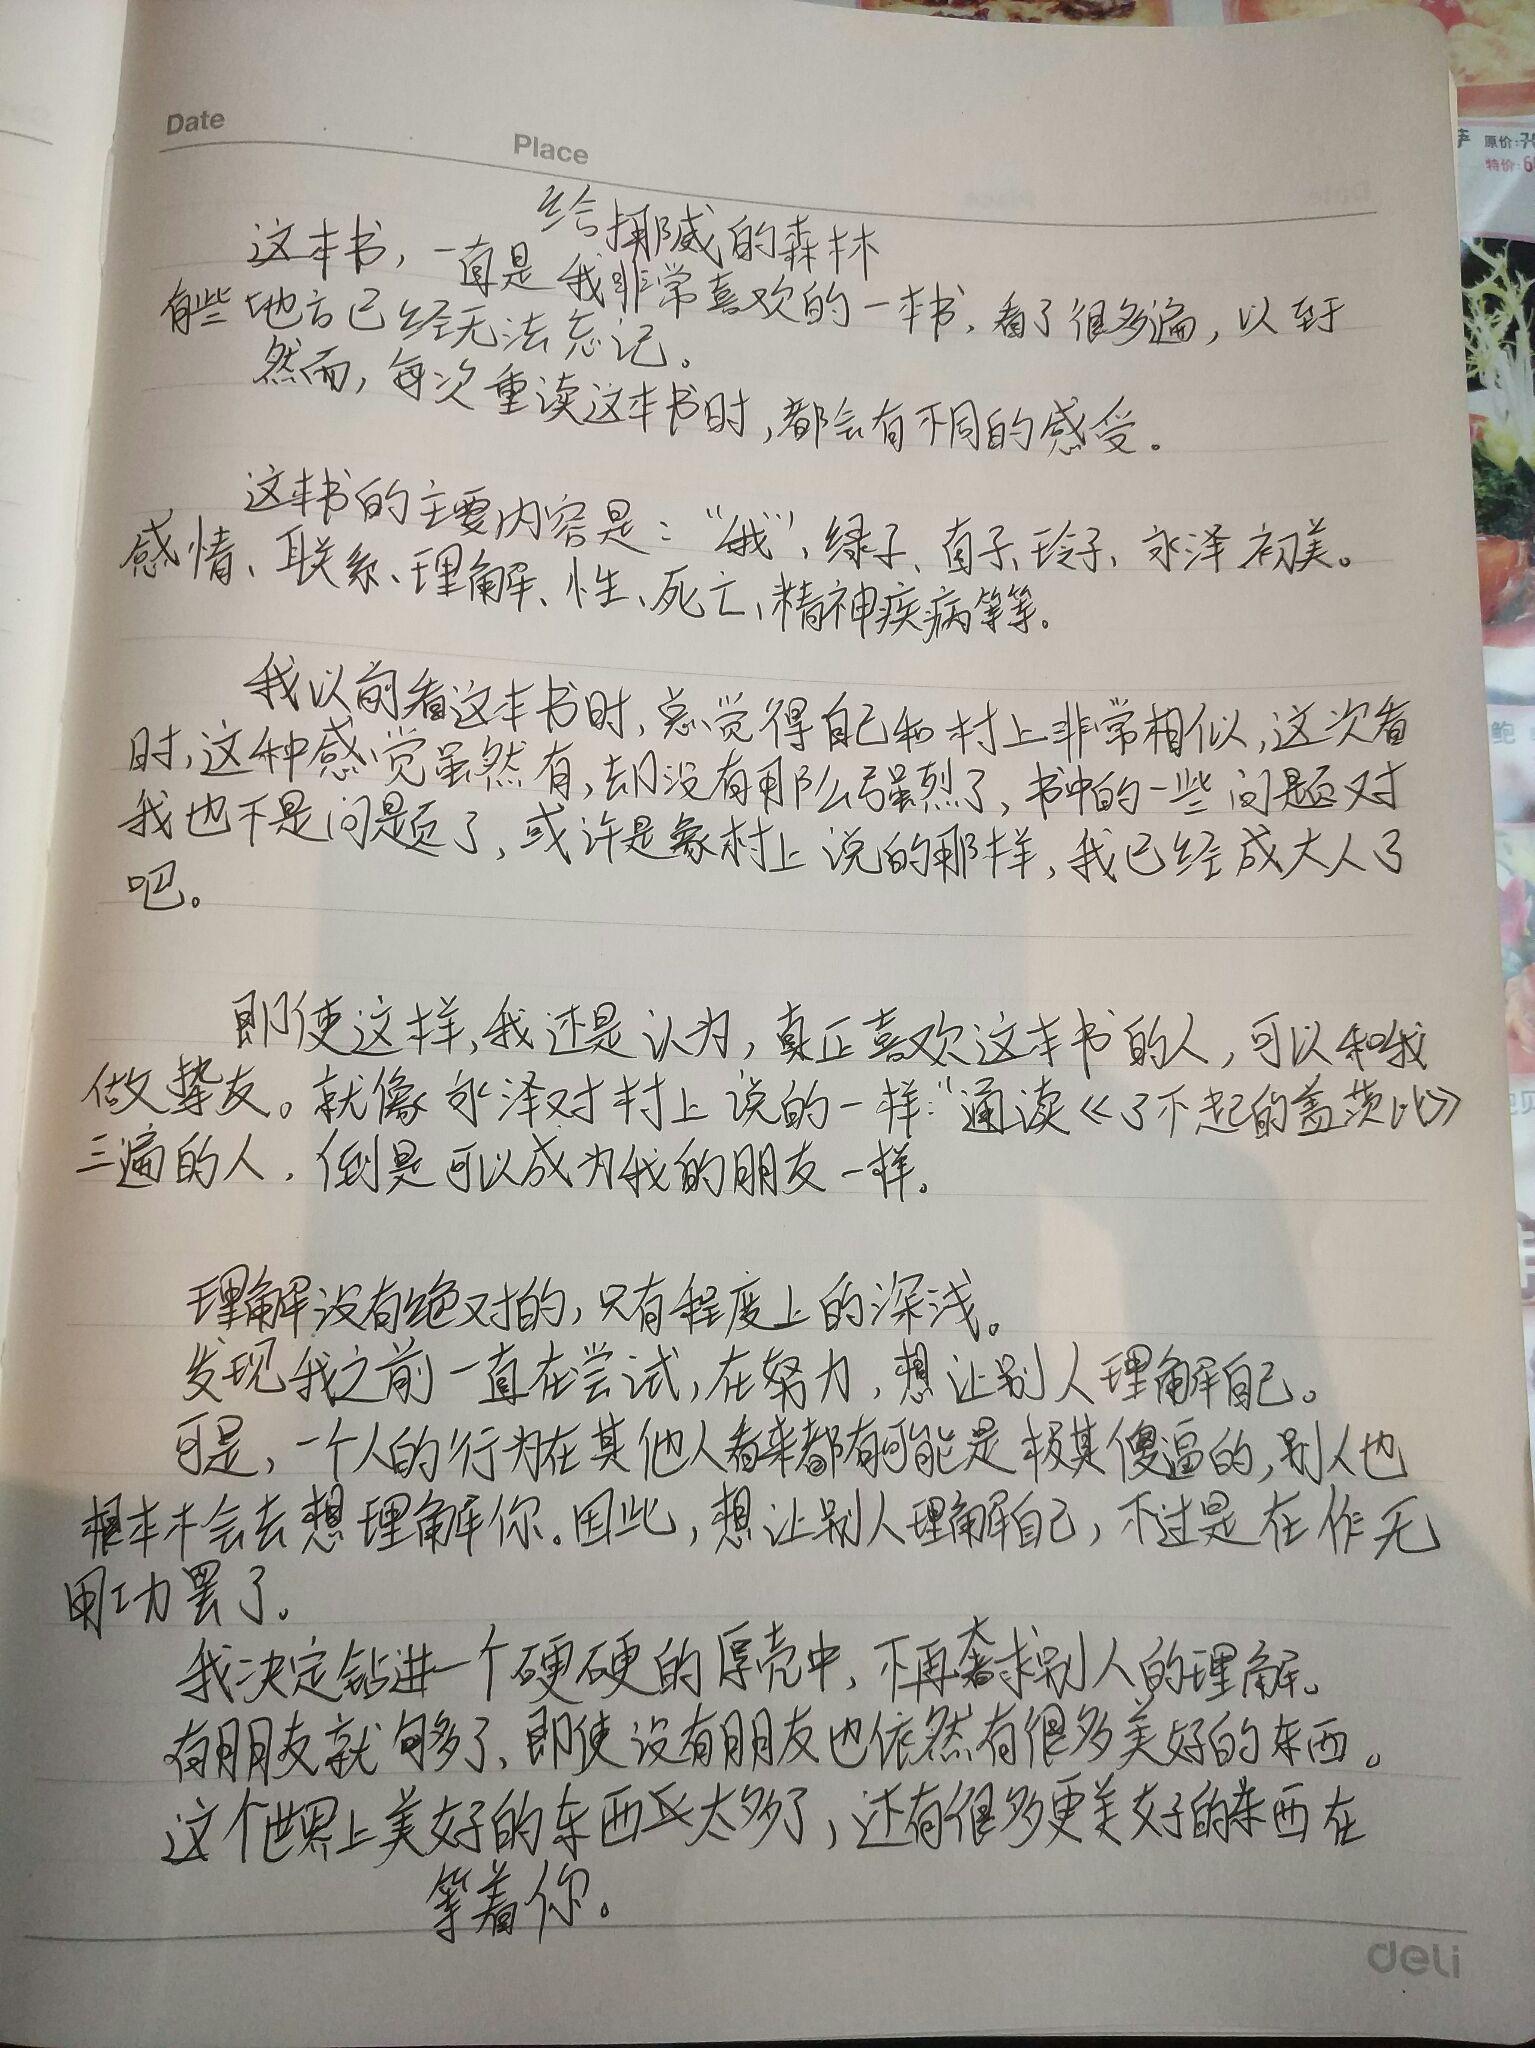 Date
Place
给挪威的森林
这本书，一直是我非常喜欢的一本书，看了很多遍，以至于
有些地方已经无法忘记。
然而，每次重读这本书时，都会有不同的感受。
这本书的主要内容是：“我”、绿子、直子、玲子、永泽、初美。
感情、联系、理解、性、死亡、精神疾病等等。
我以前看这本书时，总觉得自己和村上非常相似，这次看
时，这种感觉虽然有，却没有那么强烈了，书中的一些问题对
我也不是问题了，或许是象村上说的那样，我已经成大人了
吧。
即使这样，我还是认为，真正喜欢这本书的人，可以和我
做挚友。就像永泽对村上说的一样：“通读《了不起的盖茨比》
三遍的人，倒是可以成为我的朋友一样。
理解没有绝对的，只有程度上的深浅。
发现我之前一直在尝试，在努力，想让别人理解自己。
可是，一个人的行为在其他人看来都有可能是极其傻逼的，别人也
根本不会去想理解你。因此，想让别人理解自己，不过是在作无
用功罢了。
我决定钻进一个硬硬的厚壳中，不再奢求别人的理解。
有朋友就够多了，即使没有朋友也依然有很多美好的东西。
这个世界上美好的东西太多了，还有很多更美好的东西在
等着你。
deli
原价:
特价:
鲍